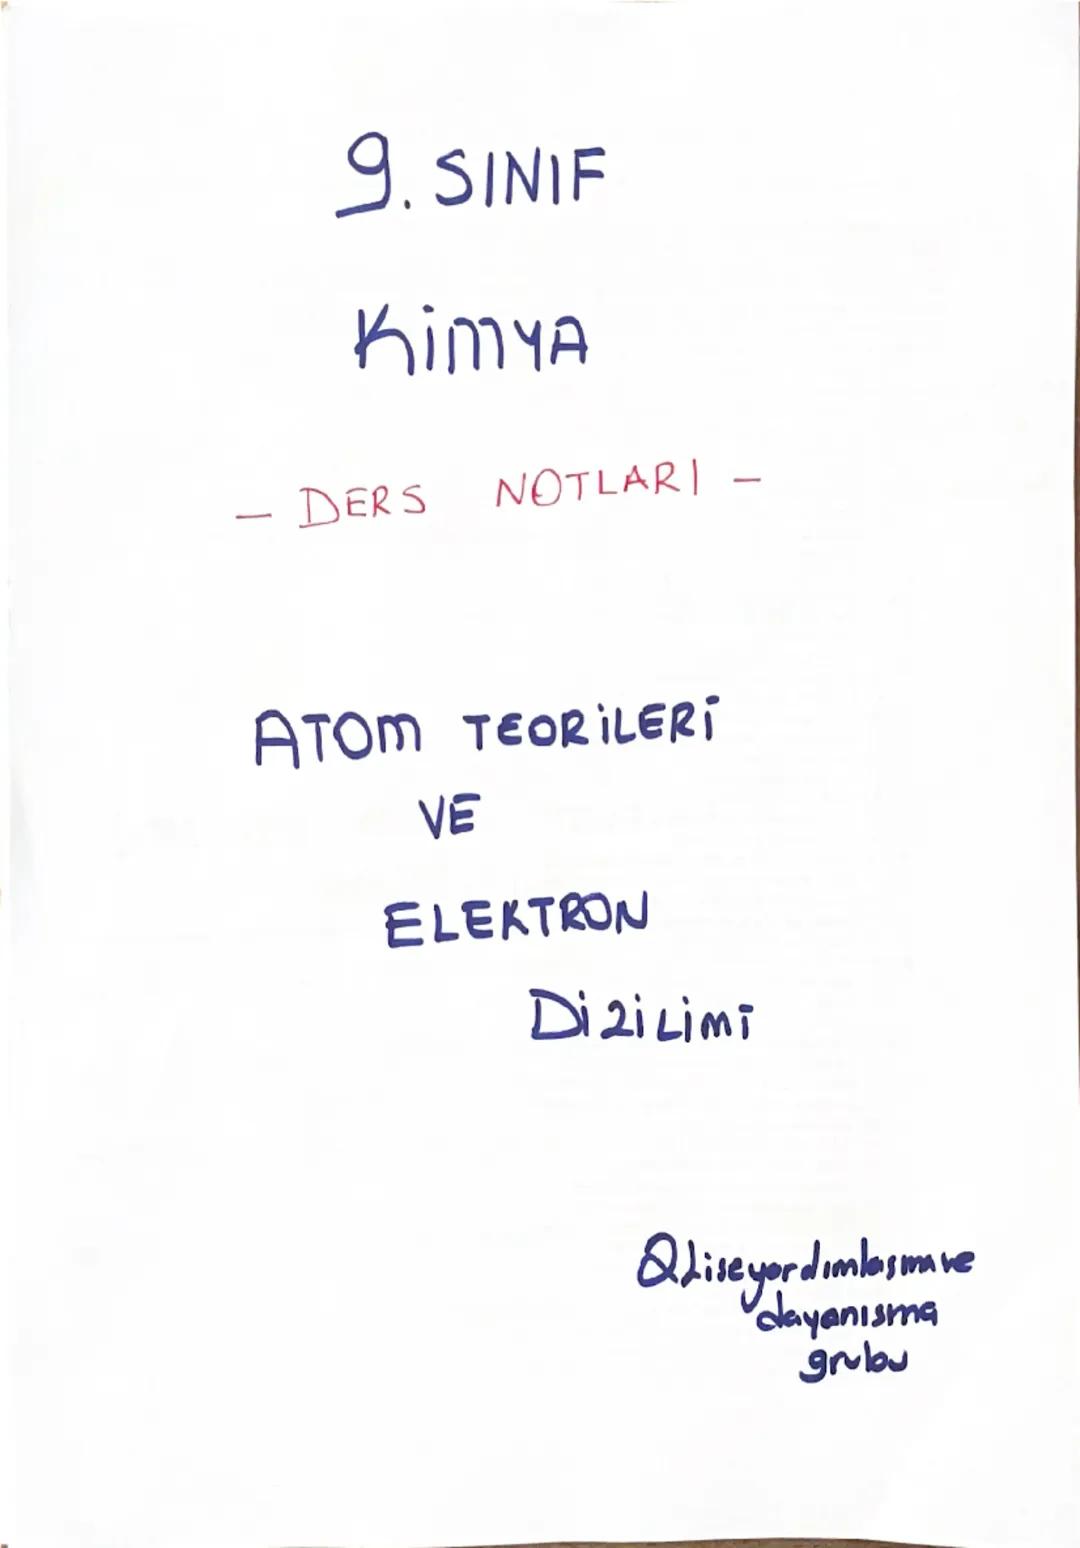 9. SINIF
KİMYA
- DERS NOTLARI -
ATOM TEORİLERİ
VE
ELEKTRON
DİZİLİMİ
@Liseyardımlasmave
dayanısma
grubu